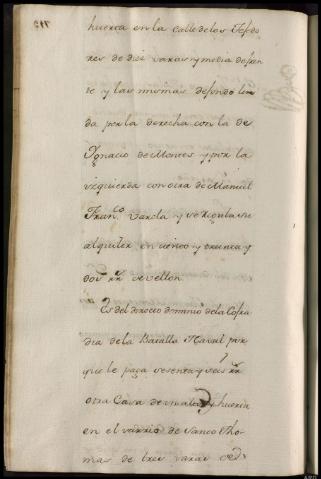 huerta en la Calle de los Texedo
res de diez varas y media de fren
te y las mismas de fondo lin
da por la derecha con la de
Ygnacio de Montes y por la
izquierda con otra de Manuel
Fran.co Varela y se regula su
alquiler en ciento y treinta y
dos rr.s de vellon.
Es del directo dominio de la Cofra
dia de la Batalla Naval por
que le paga sesenta y seis rr.s
otra Casa de un alto y huerta
en el varrio de Santo Tho
mas de tres varas